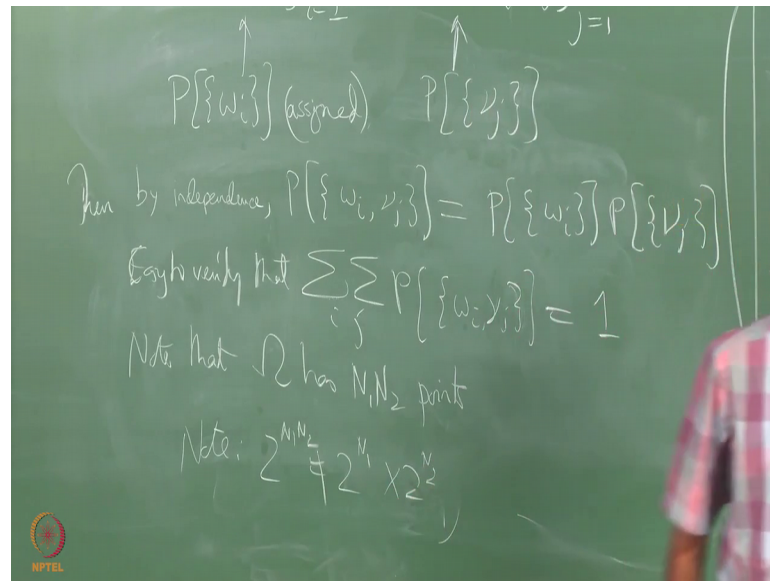 j=1
P[{ω_i}] (assigned) P[{ν_j}]
Then by independence, P[{ω_i, ν_j}] = P[{ω_i}] P[{ν_j}]
Easy to verify that ∑_i ∑_j P[{ω_i, ν_j}] = 1
Note that Ω has N_1N_2 points
Note: 2^{N_1N_2} ≠ 2^{N_1} × 2^{N_2}
NPTEL